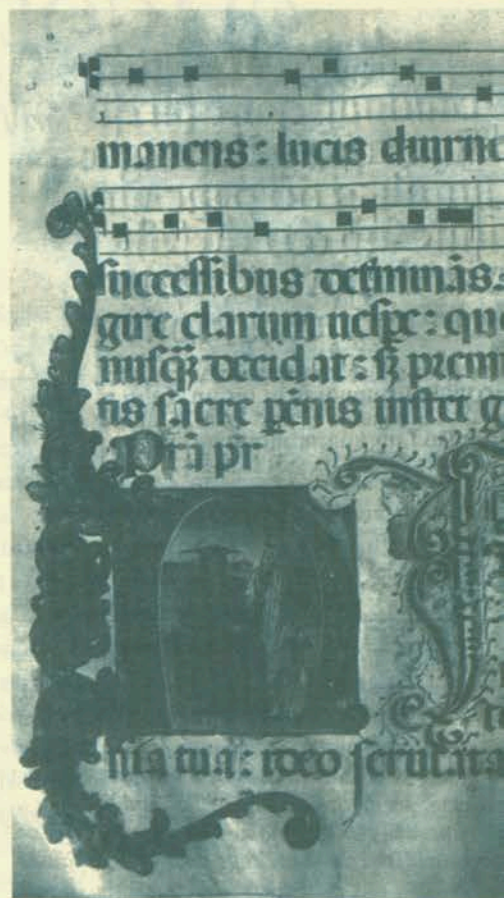 manens : lucis diurne
successibus detĩminãs.
gire clarum uespe : quo
nusq̃ decidat : s̃ premi
tis sacre p̃enis instet g
P̃ri p̃r
nia tua : ideo scrutata